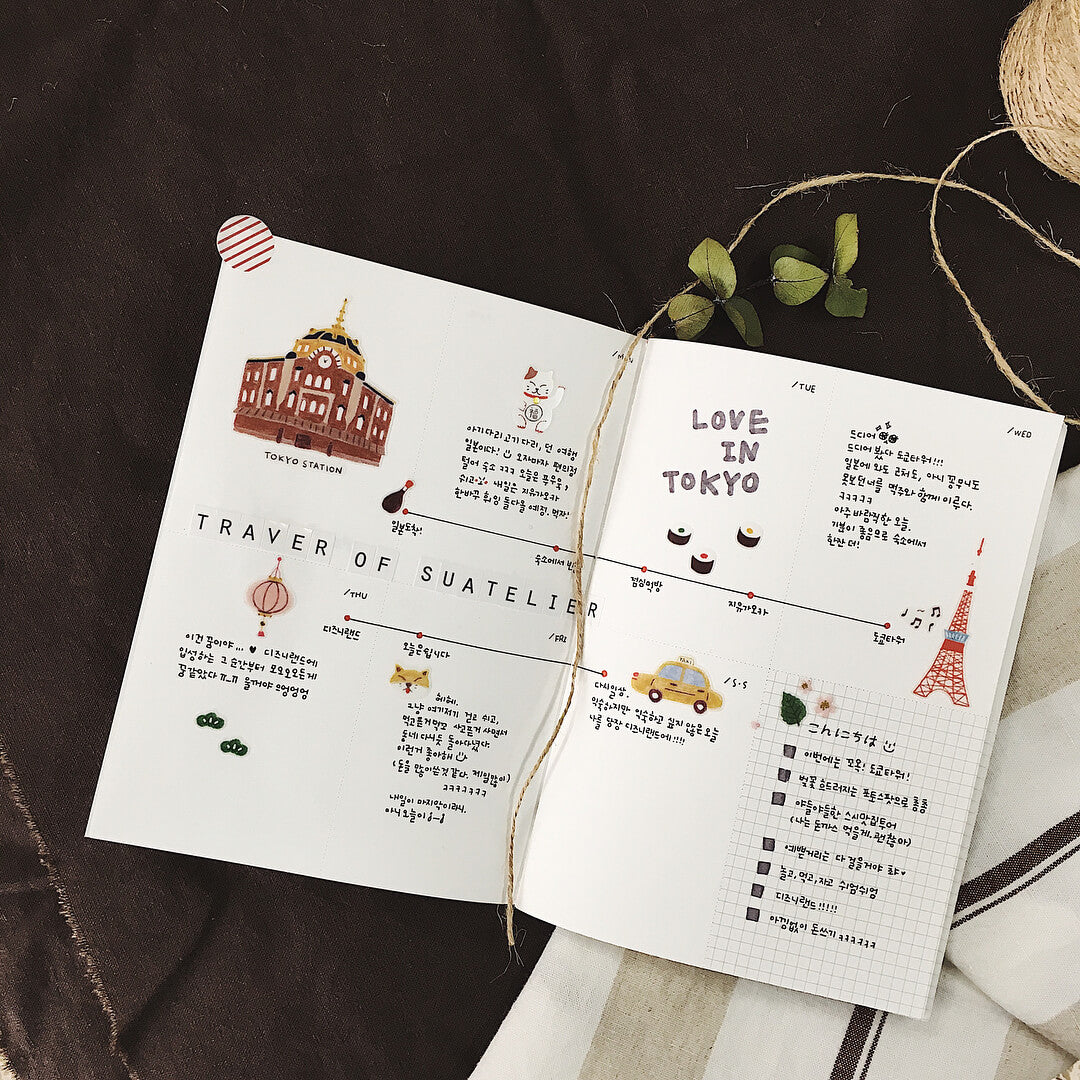 TOKYO STATION
/MON
아기다리고기다리, 던 여행
일본이다! 오자마자 편의점
털어 숙소 ㅋㅋㅋ 오늘은 푸우욱,
쉬고 내일은 지유가오카
한바꾸 휘잉 돌다올 예정. 먹자!
일본도착!
숙소에서
TRAVER OF SUATELIER
/THU
디즈니랜드
이건 꿈이야,,, ♥ 디즈니랜드에
입성하는 그순간부터 모오오오든게
꿈같았다 ㅠ_ㅠ 울꺼야 으엉엉엉
오늘은쉽니다
/FRI
헤헤.
그냥 여기저기 걷고 쉬고,
먹고픈거먹꼬 사고픈거 사면서
동네 다시둣 돌아다녔다.
이런거 좋아해
(돈을 많이쓴것같다. 제일많이)
ㅋㅋㅋㅋㅋㅋㅋ
내일이 마지막이라니.
아니 오늘이
/TUE
LOVE
IN
TOKYO
점심먹방
지유가오카
/WED
드디어
드디어 봤다 도쿄타워!!!
일본에 와도 근처도, 아니 꽁무니도
못보던너를 맥주와 함께 이루다.
ㅋㅋㅋㅋㅋ
아주 바람직한 오늘.
기분이 좋음으로 숙소에서
한잔 더!
도쿄타워
TAXI
/S.S
다시일상.
익숙하지만 익숙하고 싶지 않은 오늘
나를 당장 디즈니랜드에!!!!
こんにちは
이번에는 꼬옥! 도쿄타워!
벚꽃 흐드러지는 포토스팟으로 총총
야들야들한 스시맛집투어
(나는 돈까스 먹을게. 괜찮아)
예쁜거리는 다 걸을거야 쵸 ♥
놀고,먹고,자고 쉬엄쉬엄
디즈니랜드!!!!!
아낌없이 돈쓰기 ㅋㅋㅋㅋㅋㅋ